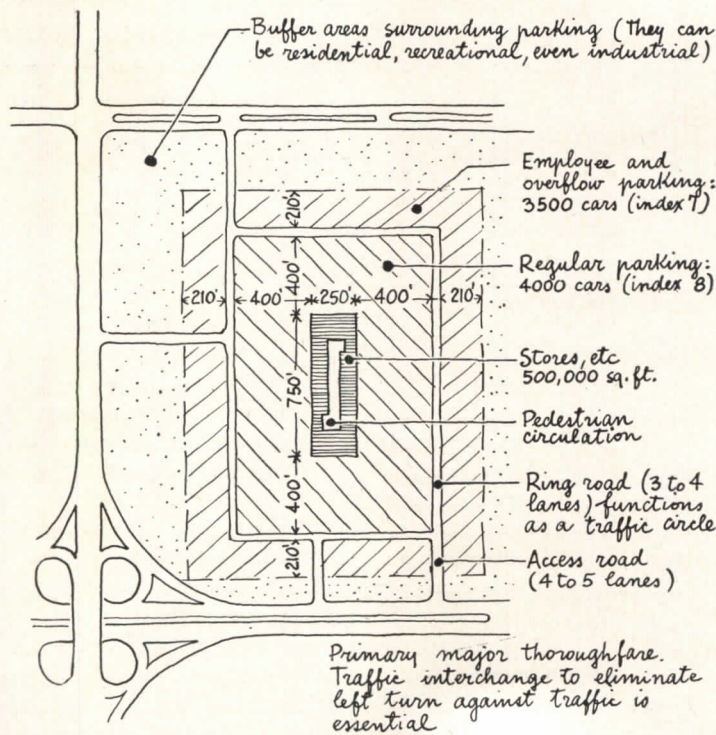 Buffer areas surrounding parking (They can
be residential, recreational, even industrial)
Employee and
overflow parking:
3500 cars (index 7)
Regular parking:
4000 cars (index 8)
Stores, etc
500,000 sq. ft.
Pedestrian
circulation
Ring road (3 to 4
lanes) functions
as a traffic circle
Access road
(4 to 5 lanes)
Primary major thoroughfare.
Traffic interchange to eliminate
left turn against traffic is
essential
210'
400'
210' 400' 250' 400' 210'
750'
400'
210'